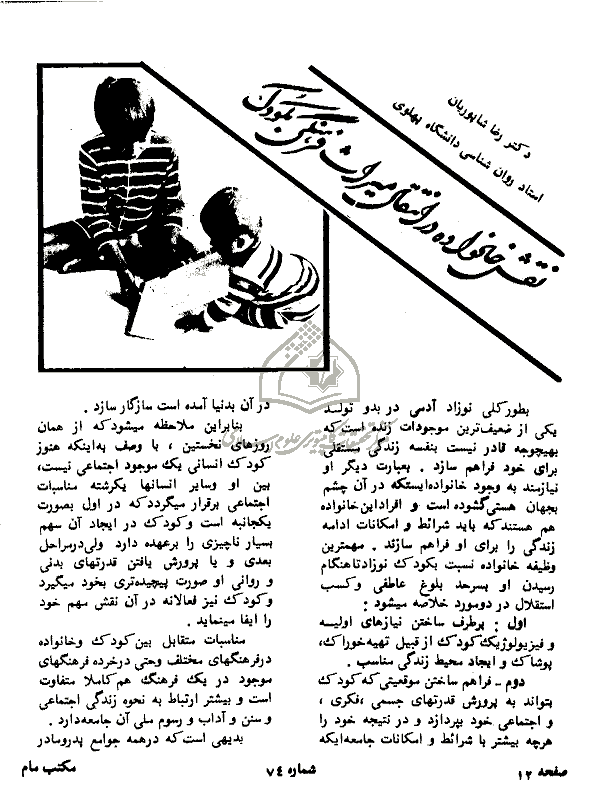 دکتر رضا شاپوریان
استاد روان شناسی دانشگاه پهلوی
نقش خانواده در انتقال میراث فرهنگی بکودک
بطورکلی نوزاد آدمی در بدو تولد
یکی از ضعیف‌ترین موجودات زنده است که
بهیچوجه قادر نیست بنفسه زندگی مستقلی
برای خود فراهم سازد . بعبارت دیگر او
نیازمند به وجود خانواده‌ایستکه در آن چشم
بجهان هستی گشوده است و افراد این خانواده
هم هستند که باید شرائط و امکانات ادامه
زندگی را برای او فراهم سازند . مهمترین
وظیفه خانواده نسبت بکودک نوزاد تا هنگام
رسیدن او بسرحد بلوغ عاطفی و کسب
استقلال در دو مورد خلاصه میشود :
اول : برطرف ساختن نیازهای اولیه
و فیزیولوژیک کودک از قبیل تهیه خوراک ،
پوشاک و ایجاد محیط زندگی مناسب .
دوم ـ فراهم ساختن موقعیتی که کودک
بتواند به پرورش قدرتهای جسمی ، فکری ،
و اجتماعی خود بپردازد و در نتیجه خود را
هرچه بیشتر با شرائط و امکانات جامعه‌ایکه
در آن بدنیا آمده است سازگار سازد .
بنابراین ملاحظه میشود که از همان
روزهای نخستین ، با وصف به اینکه هنوز
کودک انسانی یک موجود اجتماعی نیست ،
بین او وسایر انسانها یکرشته مناسبات
اجتماعی برقرار میگردد که در اول بصورت
یکجانبه است و کودک در ایجاد آن سهم
بسیار ناچیزی را برعهده دارد ولی در مراحل
بعدی و با پرورش یافتن قدرتهای بدنی
و روانی او صورت پیچیده‌تری بخود میگیرد
و کودک نیز فعالانه در آن نقش سهم خود
را ایفا مینماید .
مناسبات متقابل بین کودک و خانواده
در فرهنگهای مختلف وحتی در خرده فرهنگهای
موجود در یک فرهنگ هم کاملا متفاوت
است و بیشتر ارتباط به نحوه زندگی اجتماعی
و سنن و آداب و رسوم ملی آن جامعه دارد .
بدیهی است که در همه جوامع پدر و مادر
صفحه ۱۲
شماره ۷٤
مکتب مام